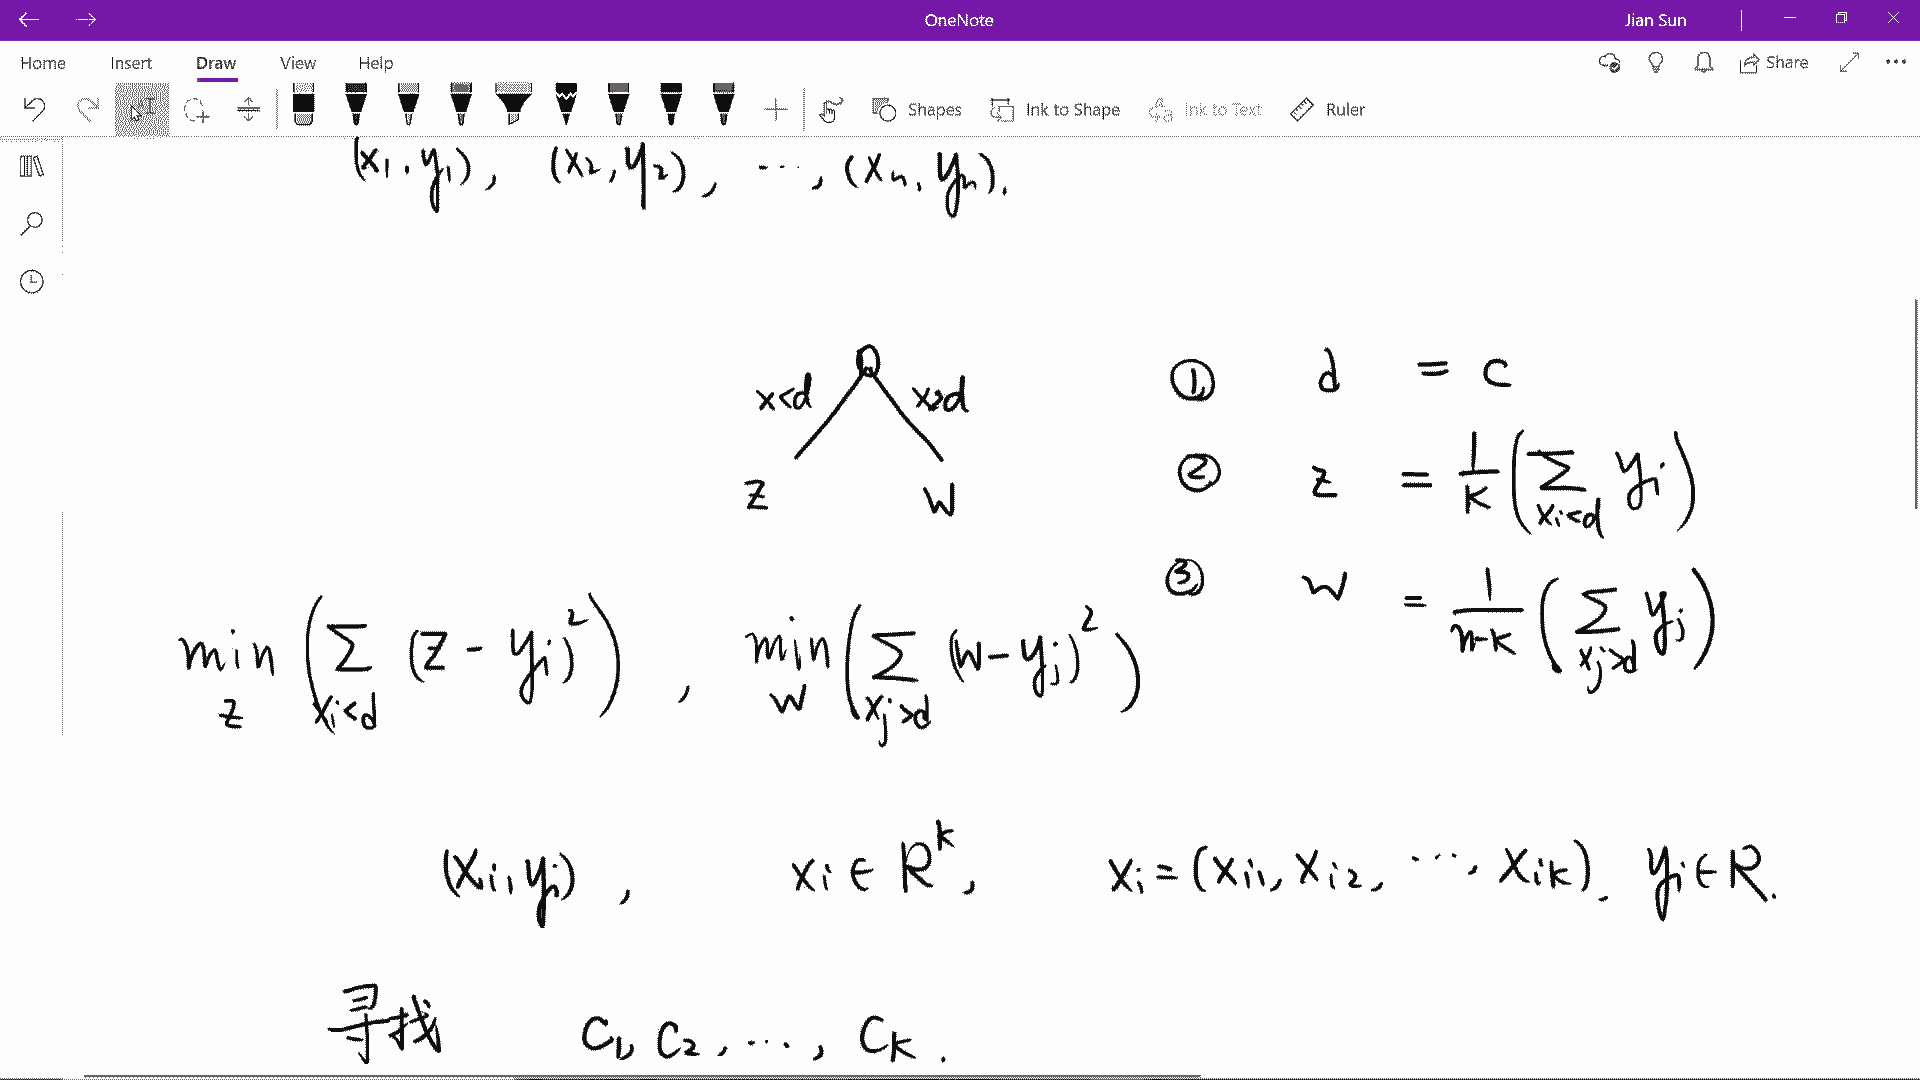 OneNote
Jian Sun
Home Insert Draw View Help
Share
Shapes Ink to Shape Ink to Text Ruler
(x₁, y₁), (x₂, y₂), ⋯, (xₙ, yₙ).
x<d x>d
z w
① d = c
② z = 1/k (∑_{xᵢ<d} yᵢ)
③ w = 1/(n-k) (∑_{xⱼ>d} yⱼ)
min_z (∑_{xᵢ<d} (z - yᵢ)²), min_w (∑_{xⱼ>d} (w - yⱼ)²)
(xᵢ, yᵢ), xᵢ ∈ R^k, xᵢ = (xᵢ₁, xᵢ₂, ⋯, xᵢₖ). yᵢ ∈ R.
寻找 C₁, C₂, ⋯, Cₖ.